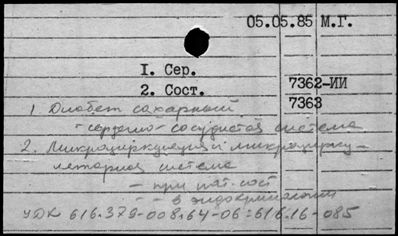 05.05.85 М.Г.
I. Сер.
2. Сост.
7362-ИИ
7363
1. Диабет сахарный
- сердечно-сосудистая система
2. Микроциркуляция и микроцирку-
ляторная система
- при пат. сост
- в эндокринологии
УДК 616.379-008.64-06:616.16-085